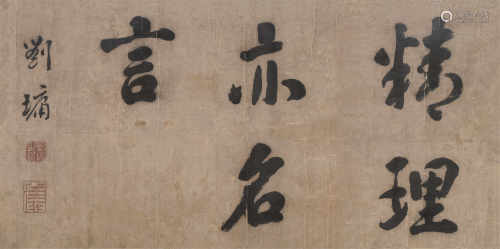 精理
亦名
言
劉墉